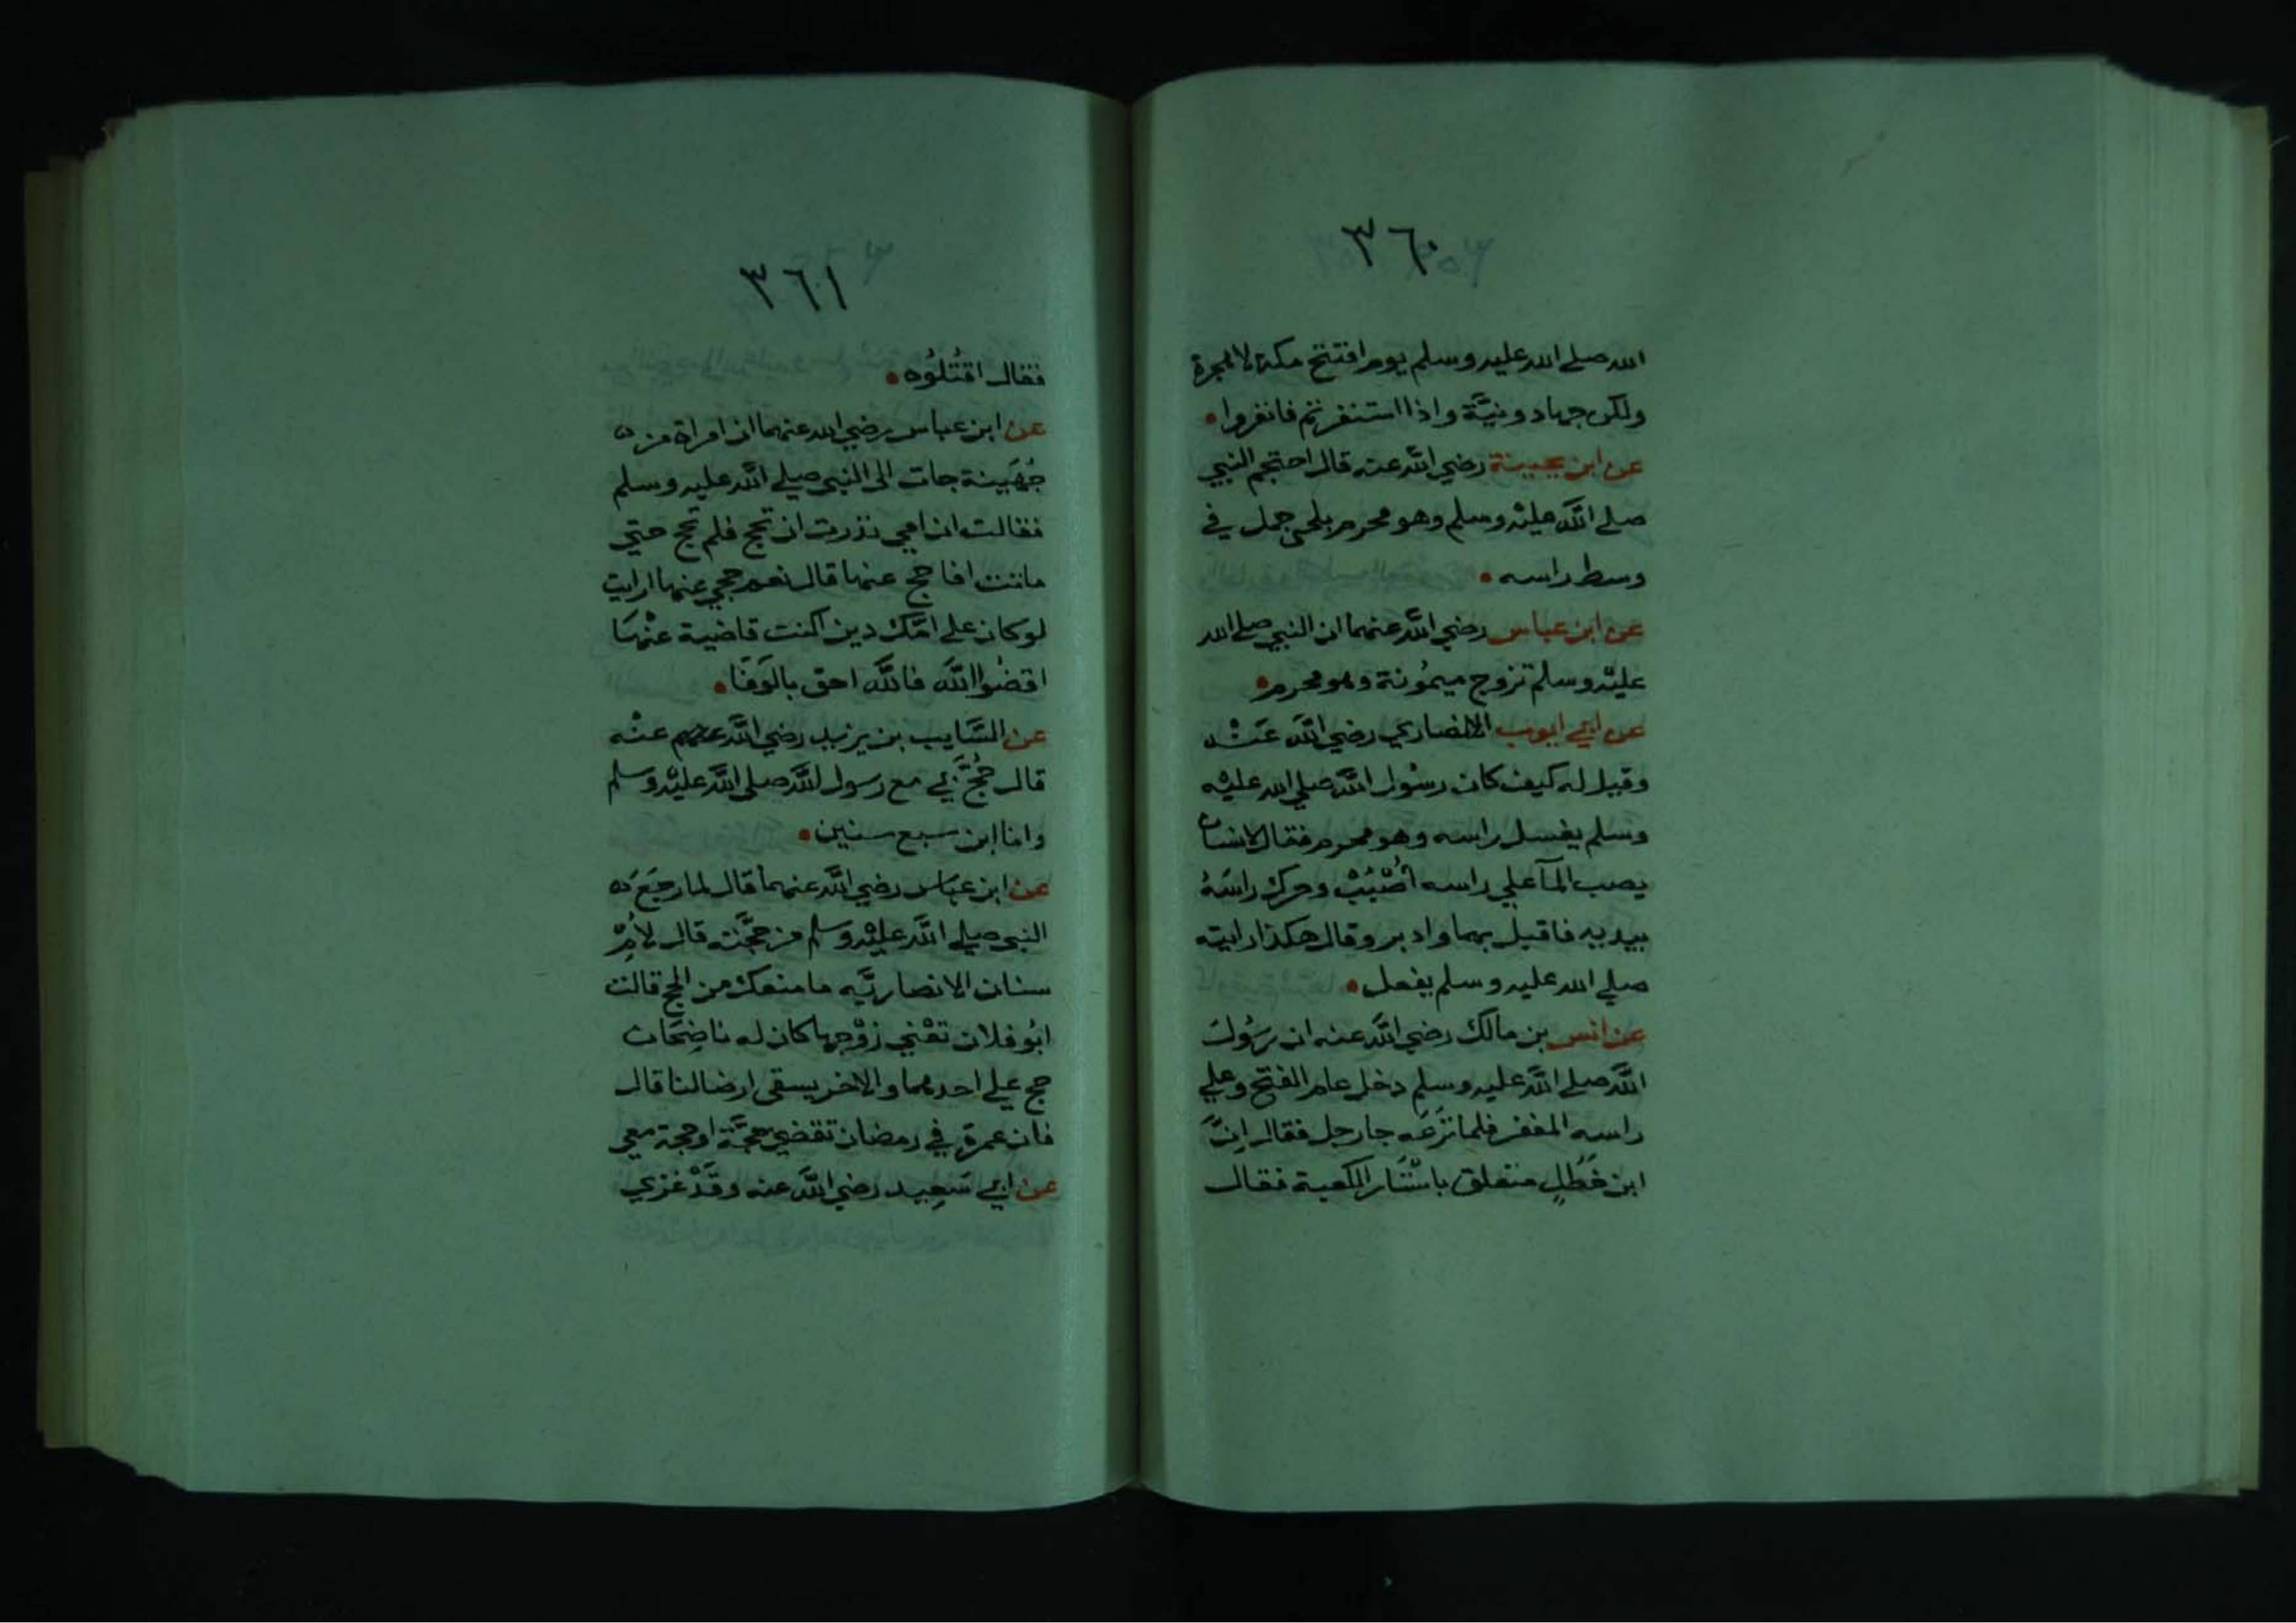 ٣٦٠
الله صلي الله عليه وسلم يوم افتتح مكة لا هجرة
ولكن جهاد ونيَّة واذا استنفرتم فانفروا
عن ابن بحيينة رضي اللَّه عنه قال احتجم النبي
صلي اللَّه عليْه وسلم وهو محرم بلحي جمل في
وسط راسه
عن ابن عباس رضي اللَّه عنهما ان النبي صلي الله
عليْه وسلم تزوج ميمُونة وهو محرم
عن ابي ايوب الانصاري رضي اللَّه عَنْه
وقيل له كيف كان رسُول اللَّه صلي الله عليْه
وسلم يغسل راسه وهو محرم فقال لانسان
يصب المآ علي راسه اُصْبُبْ وحرك راسَهُ
بيديه فاقبل بهما وادبر وقال هكذا رايته
صلي الله عليه وسلم يفعل
عن انس بن مالك رضي اللَّه عنه ان رسُول
اللَّه صلي اللَّه عليه وسلم دخل عام الفتح وعلي
راسه المغفر فلما نزَعَه جا رجل فقال اِنَّ
ابن خَطَلٍ متعلق باسْتَار الكعبة فقال
٣٦١
فقال اقتُلُوه
عن ابن عباس رضي الله عنهما ان امراة من
جُهَيِنة جات الي النبي صلي اللَّه عليه وسلم
فقالت ان امي نذرت ان تحج فلم تحج حتي
ماتت افاحج عنها قال نعم حجي عنها ارايت
لو كان علي امّك دين اكنت قاضية عنْهَا
اقضُوا اللَّه فاللَّه احق بالوَفَا
عن السَّايب بن يزيد رضي اللَّه عنهم عنْه
قال حُجَّ بي مع رسول اللَّه صلي اللَّه عليْه وسلم
وانا ابن سبع سنين
عن ابن عبَاس رضي اللَّه عنهما قال لما رجَعَ
النبي صلي اللَّه عليْه وسلم من حجَّته قال لاُمِّ
سنان الانصاريَّه ما منعك من الحج قالت
ابُو فلان تعْني زوْجها كان له ناضِحَان
حج علي احدهما والاخر يسقي ارضا لنا قال
فان عمرة في رمضان تقضي حجَّة او حجة معي
عن ابي سَعِيد رضي اللَّه عنه وقَدْ غزي